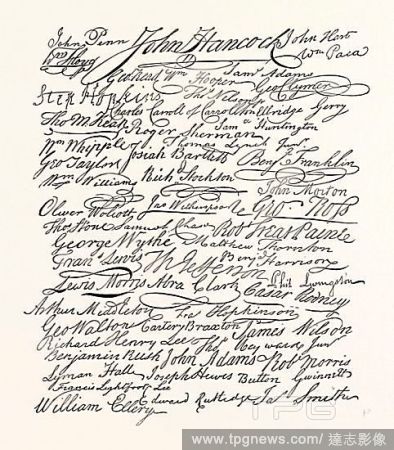 John Penn John Hancock John Hart
Wm Floyd Wm Paca
Geo Read Wm Hooper Saml Adams
Geo Clymer
Step Hopkins Thos Nelson jr
Charles Carroll of Carrollton Elbridge Gerry
Tho M:Kean Roger Sherman Saml Huntington
Wm Whipple Thomas Lynch Junr
Geo Taylor Josiah Bartlett Benj Franklin
Wm Williams Richd Stockton John Morton
Oliver Wolcott Jno Witherspoon Geo Ross
Thos Stone Samuel Chase Robt Treat Paine
George Wythe Matthew Thornton
Fran Lewis Th Jefferson Benj Harrison
Lewis Morris Abra Clark Phil Livingston
Cæsar Rodney
Arthur Middleton Fras Hopkinson
Geo Walton Carter Braxton James Wilson
Richard Henry Lee Thos Heyward Junr
Benjamin Rush John Adams Robt Morris
Lyman Hall Joseph Hewes Button Gwinnett
Francis Lightfoot Lee
William Ellery Edward Rutledge Jas Smith
TPG
www.tpgnews.com/ 達志影像